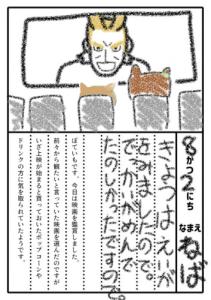 8がつ2にち なまえ ねば
きょうはえいが
をみましたので。
でっかいがめんで
たのしかったですので。
ぼていもです。今日は映画を鑑賞しました。
前々から観たいと言っていた映画を選んだのですが
いざ上映が始まると買っておいたポップコーンや
ドリンクの方に気を取られていたようです。